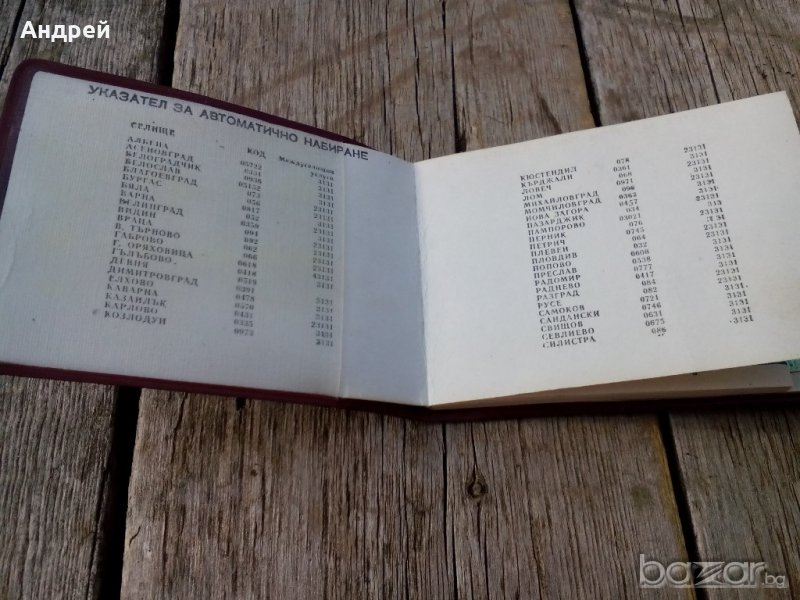 Андрей
УКАЗАТЕЛ ЗА АВТОМАТИЧНО НАБИРАНЕ
СЕЛИЩЕ КОД Междуселищни услуги
АЛБЕНА 05722 3131
АСЕНОВГРАД 0331 23131
БЕЛОГРАДЧИК 0936 3131
БЕЛОСЛАВ 05152 3131
БЛАГОЕВГРАД 073 23131
БУРГАС 056
БЯЛА 0817
ВАРНА 052
ВЕЛИНГРАД 0359
ВИДИН 094
ВРАЦА 092
В. ТЪРНОВО 062
ГАБРОВО 066
Г. ОРЯХОВИЦА 0618
ГЪЛЪБОВО 0418
ДЕВНЯ 0519
ДИМИТРОВГРАД 0391
ЕЛХОВО 0478
КАВАРНА 0570
КАЗАНЛЪК 0431
КАРЛОВО 0335
КОЗЛОДУЙ 0973
КЮСТЕНДИЛ 078 23131
КЪРДЖАЛИ 0361 3131
ЛОВЕЧ 068 23131
ЛОМ 0971 3131
МИХАЙЛОВГРАД 096 23131
МОМЧИЛОВГРАД 0363 3131
НОВА ЗАГОРА 0457 3131
ПАЗАРДЖИК 034 23131
ПАМПОРОВО 03021
ПЕРНИК 076 23131
ПЕТРИЧ 0745 3131
ПЛЕВЕН 064 23131
ПЛОВДИВ 032 23131
ПОПОВО 0608 3131
ПРЕСЛАВ 0538 3131
РАДОМИР 0777 3131
РАДНЕВО 0417 3131
РАЗГРАД 084 23131
РУСЕ 082 23131
САМОКОВ 0721 3131
САНДАНСКИ 0746 3131
СВИЩОВ 0631 3131
СЕВЛИЕВО 0675 3131
СИЛИСТРА 086
bazar.bg